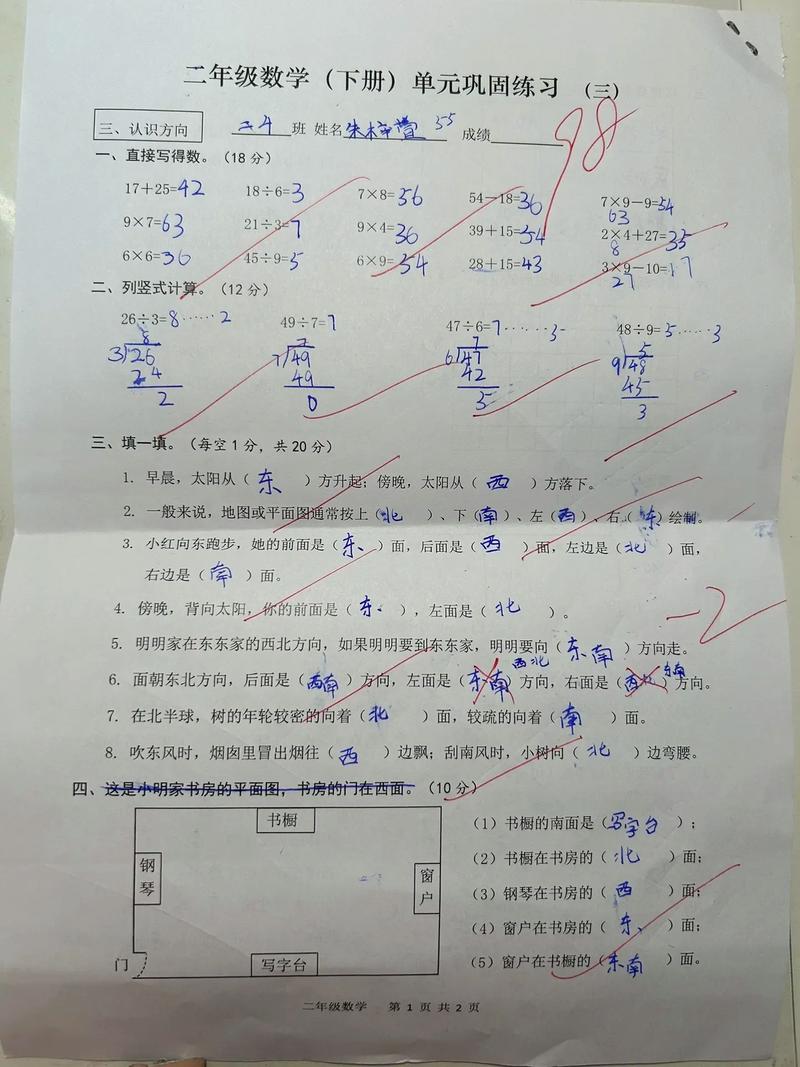 二年级数学（下册）单元巩固练习 （三）
三、认识方向 二4班 姓名 55 成绩 98
一、直接写得数。（18分）
17+25=42 18÷6=3 7×8=56 54-18=36 7×9-9=54
63
9×7=63 21÷3=7 9×4=36 39+15=54 2×4+27=35
8
6×6=36 45÷9=5 6×9=54 28+15=43 3×9-10=17
27
二、列竖式计算。（12分）
26÷3=8……2 49÷7=7 47÷6=7……5 48÷9=5……3
8 7 7 5
3 26 7 49 6 47 9 48
24 49 42 45
2 0 5 3
三、填一填。（每空1分，共20分）
1. 早晨，太阳从（东）方升起；傍晚，太阳从（西）方落下。
2. 一般来说，地图或平面图通常按上（北）、下（南）、左（西）、右（东）绘制。
3. 小红向东跑步，她的前面是（东）面，后面是（西）面，左边是（北）面，
右边是（南）面。
4. 傍晚，背向太阳，你的前面是（东），左面是（北）。
-2
5. 明明家在东东家的西北方向，如果明明要到东东家，明明要向（东南）方向走。
西北 东南
6. 面朝东北方向，后面是（西南）方向，左面是（东南）方向，右面是（西北）方向。
7. 在北半球，树的年轮较密的向着（北）面，较疏的向着（南）面。
8. 吹东风时，烟囱里冒出烟往（西）边飘；刮南风时，小树向（北）边弯腰。
四、这是小明家书房的平面图，书房的门在西面。（10分）
书橱
钢琴
窗户
门
写字台
（1）书橱的南面是（写字台）；
（2）书橱在书房的（北）面；
（3）钢琴在书房的（西）面；
（4）窗户在书房的（东）面；
（5）窗户在书橱的（东南）面。
二年级数学 第 1 页 共 2 页